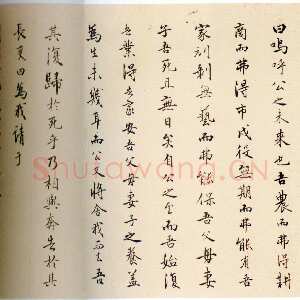 曰嗚呼公之未來也吾農而弗得耕
商而弗得市戍役無期而弗能有吾
家刓剝無藝而弗能保吾父母妻
子吾死且無日矣自公之至而吾始復
吾業得吾家安吾父母妻子之養蓋
為生未幾耳而公將舍我而去吾
其復歸於死乎乃相與奔告於其
長吏曰為我請于
Shufawang.CN